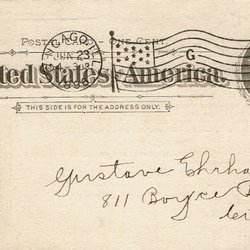 POSTAL CARD — ONE CENT.
CHICAGO, ILL.
JUN 23
G
United States of America.
THIS SIDE IS FOR THE ADDRESS ONLY.
Gustave
811 Boyce